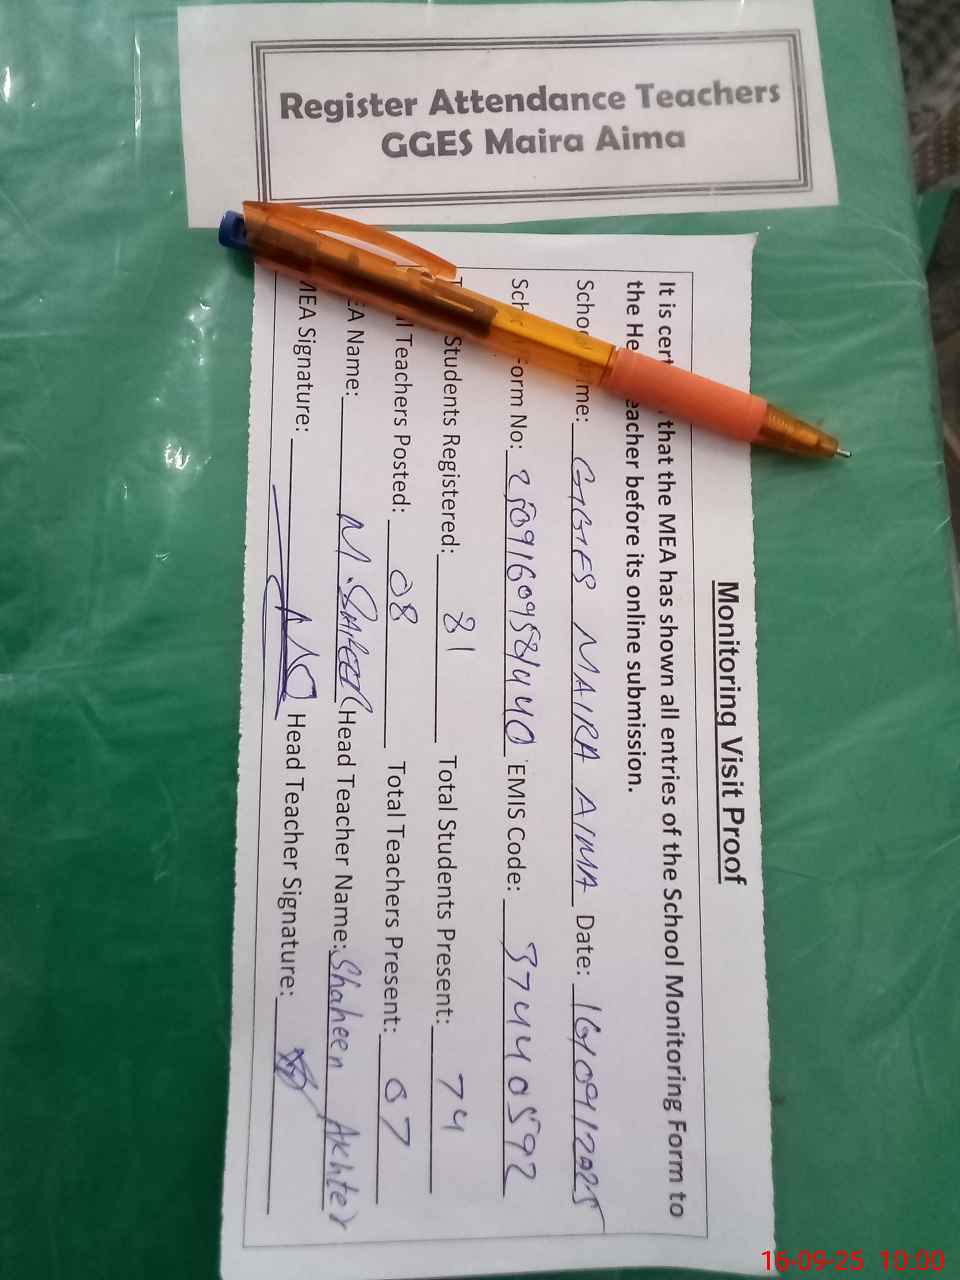 Register Attendance Teachers
GGES Maira Aima
Monitoring Visit Proof
It is cert that the MEA has shown all entries of the School Monitoring Form to
the He eacher before its online submission.
School me: GGES MAIRA AIMA Date: 16/09/2025
Sch Form No: EMIS Code: 37440592
Students Registered: 81 Total Students Present: 74
l Teachers Posted: 08 Total Teachers Present: 07
EA Name: M. Head Teacher Name: Shaheen Akhter
MEA Signature: Head Teacher Signature:
16-09-25 10.00